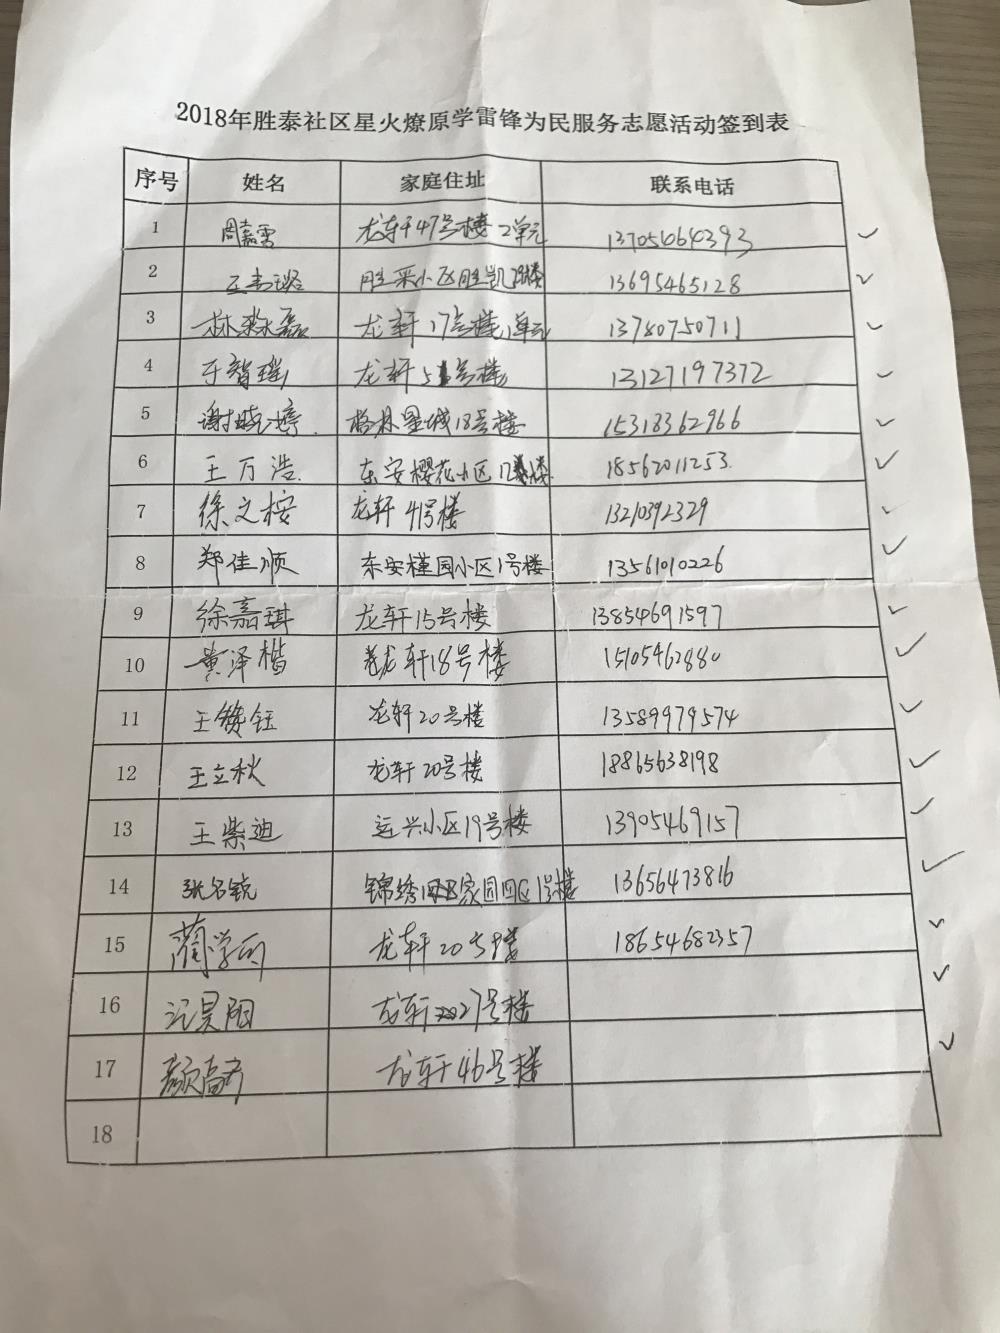 2018年胜泰社区星火燎原学雷锋为民服务志愿活动签到表
序号 姓名 家庭住址 联系电话
1 周嘉雪 龙轩47号楼2单元 13705464393
2 胜采小区胜凯 楼 13695465128
3 林淼磊 龙轩17号楼1单元 13780750711
4 于智瑞 龙轩5 号楼 13127197372
5 谢晓婷 格林星城18号楼 15318362966
6 王万浩 东安樱花小区12 楼 18562011253
7 徐文桉 龙轩41号楼 13210392329
8 郑佳顺 东安槿园小区1号楼 13561010226
9 徐嘉琪 龙轩15号楼 13854691597
10 黄泽楷 龙轩18号楼 15105462880
11 王 钰 龙轩20号楼 13589979574
12 王立秋 龙轩20号楼 18865638198
13 王紫迪 运兴小区19号楼 13905469157
14 张名锐 锦绣 家园四区1号楼 13656473816
15 蔺学雨 龙轩20号楼 18654682357
16 昊阳 龙轩27号楼
17 颜高 龙轩46号楼
18